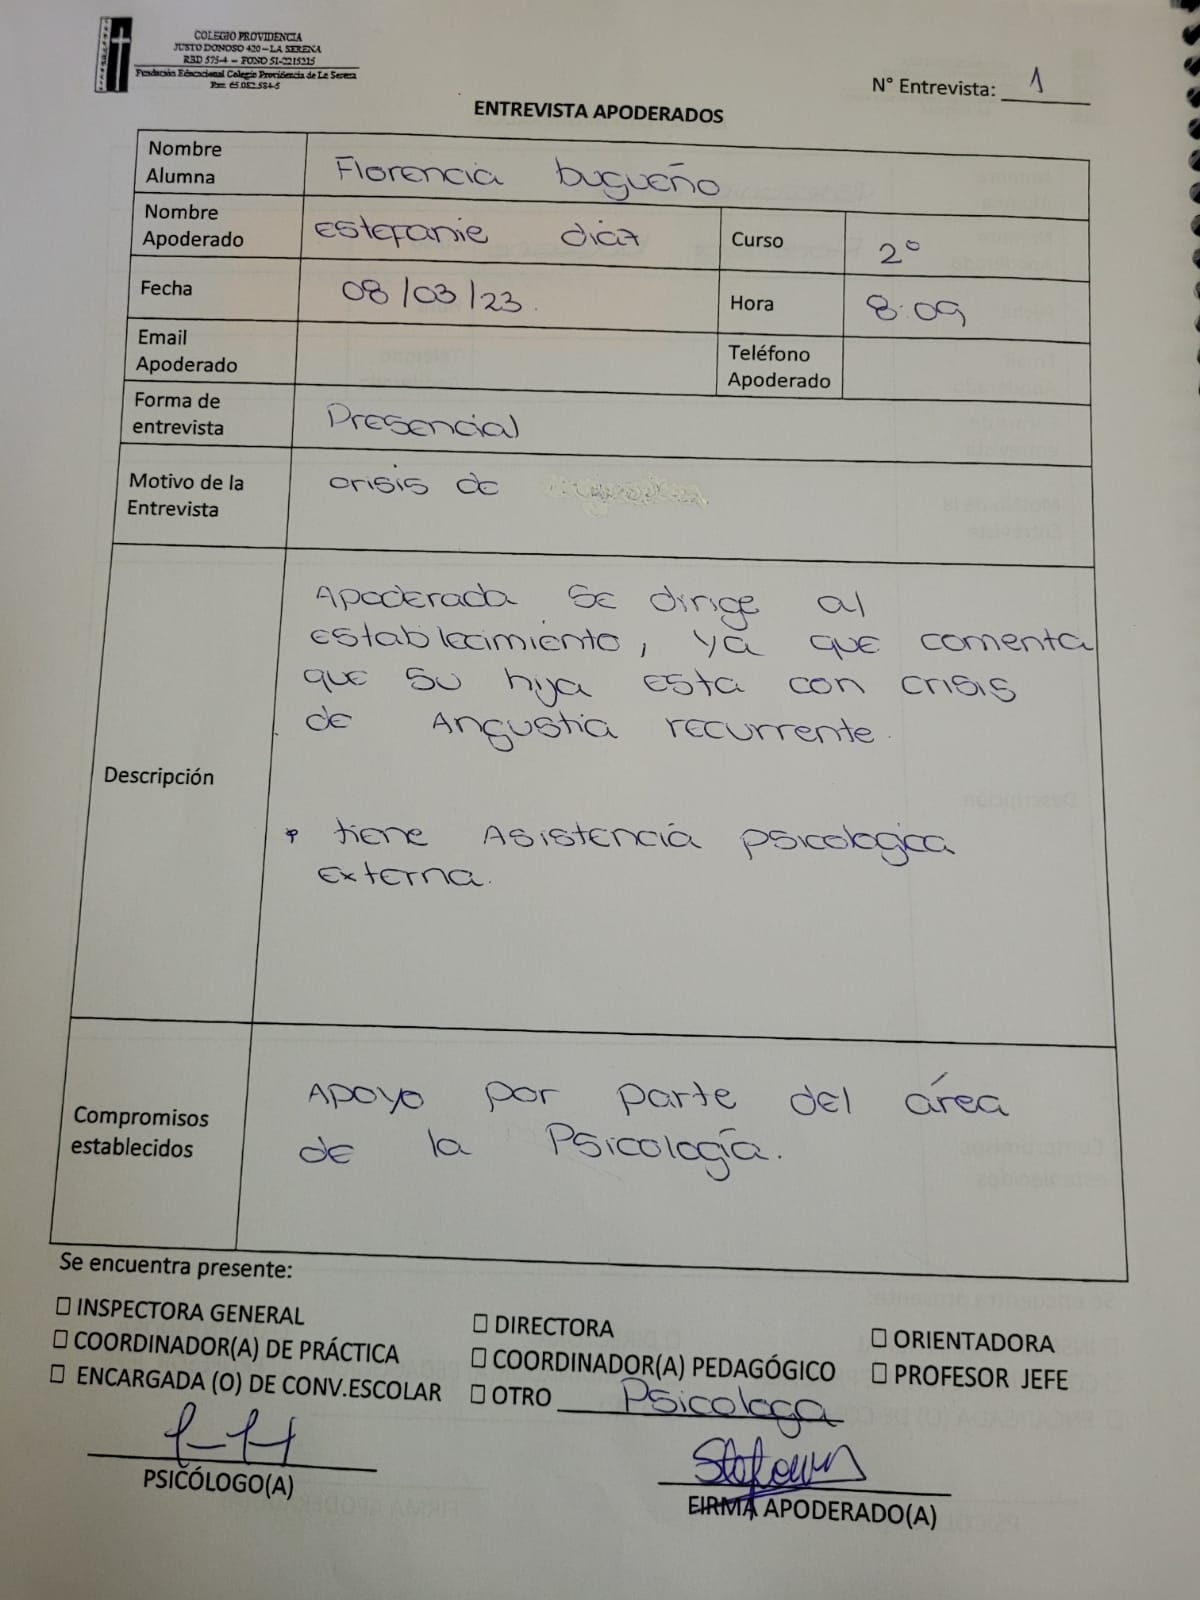 COLEGIO PROVIDENCIA
JUSTO DONOSO 420 – LA SERENA
RBD 575-4 – FONO 51-2215215
Fundación Educacional Colegio Providencia de La Serena
N° Entrevista: 1
ENTREVISTA APODERADOS
Nombre Alumna
Florencia bugueño
Nombre Apoderado
Estefanie diaz
Curso
2°
Fecha
08/03/23.
Hora
8:09
Email Apoderado
Teléfono Apoderado
Forma de entrevista
Presencial
Motivo de la Entrevista
crisis de
Descripción
Apoderada se dirige al
establecimiento, ya que comenta
que su hija esta con crisis
de Angustia recurrente.
* tiene Asistencia psicologica
Externa.
Compromisos establecidos
Apoyo por parte del área
de la Psicología.
Se encuentra presente:
☐ INSPECTORA GENERAL
☐ DIRECTORA
☐ ORIENTADORA
☐ COORDINADOR(A) DE PRÁCTICA
☐ COORDINADOR(A) PEDAGÓGICO
☐ PROFESOR JEFE
☐ ENCARGADA (O) DE CONV.ESCOLAR
☐ OTRO Psicologa
PSICÓLOGO(A)
FIRMA APODERADO(A)